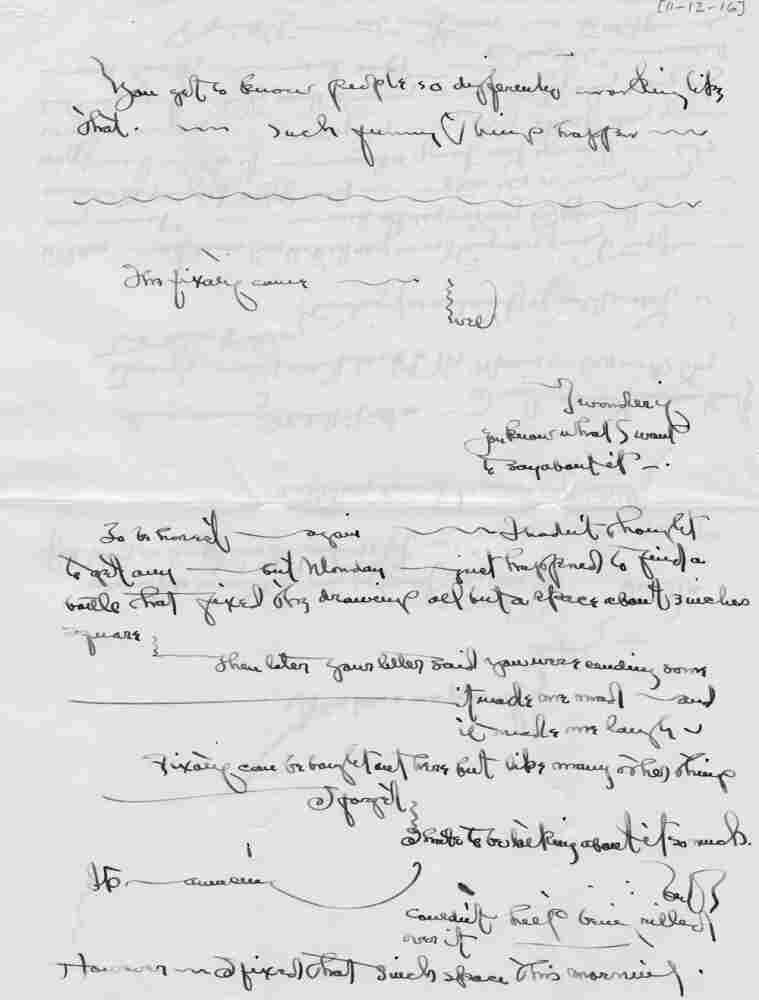 [11-12-16]
You get to know people so differently working like
that. — such funny things happen —
The fixatif came —
well
I wonder if
you know what I want
to say about it —.
To be honest — again — I hadn't thought
to get any — but Monday — just happened to find a
bottle that fixed the drawing all but a space about 3 inches
square
Then later your letter said you were sending some
it made me mad — and
it made me laugh
Fixatif can be bought out here but like many other things
I forget
I hate to be talking about it so much.
It's — amusing
but I
couldn't help being riled
over it
However — I fixed that 3 inch space this morning.